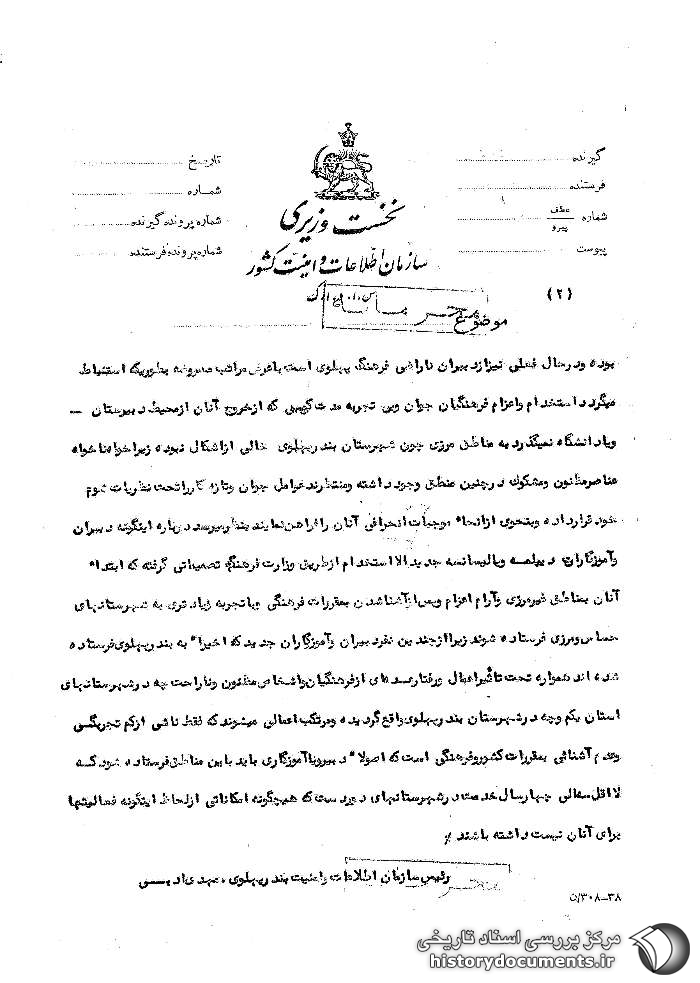 گیرنده
فرستنده
شماره عطف پیرو
پیوست
تاریخ
شماره
شماره پرونده گیرنده
شماره پرونده فرستنده
نخست وزیری
سازمان اطلاعات و امنیت کشور
(۲)
موضوع
بوده ودرحال فعلی نیزازدبیران ناراضی فرهنگ پهلوی است باعرض مراتب معروضه بطوریکه استنباط
میگردد استخدام واعزام فرهنگیان جوان وبی تجربه مدت کمی که ازخروج آنان ازمحیط دبیرستان —
ویادانشگاه نمیگذرد به مناطق مرزی چون شهرستان بندرپهلوی خالی ازاشکال نبوده زیراخواه ناخواه
عناصرمظنون ومشکوک درچنین مناطق وجود داشته ومنتظرند عوامل جوان وتازه کارراتحت نظریات شوم
خود قرارداده وبنحوی ازانحاء موجبات انحرافی آنان رافراهم نمایند بنظرمیرسد درباره اینگونه دبیران
وآموزگاران دیپلمه ویالیسانسه جدیدالاستخدام ازطریق وزارت فرهنگ تصمیماتی گرفته که ابتداء
آنان بمناطق غیرمرزی وآرام اعزام وپس ازآشناشدن بمقررات فرهنگی وباتجربه زیادتری به شهرستانهای
حساس ومرزی فرستاده شوند زیراازچندین نفردبیران وآموزگاران جدیدکه اخیراً به بندرپهلوی فرستاده
شده اند همواره تحت تأثیراعمال ورفتار ازفرهنگیان واشخاص مظنون وناراحت چه درشهرستانهای
استان یکم وچه درشهرستان بندرپهلوی واقع گردیده ومرتکب اعمالی میشوند که فقط ناشی ازکم تجربگی
وعدم آشنائی بمقررات کشوروفرهنگی است که اصولاً دبیرویاآموزگاری باید باین مناطق فرستاده شود که
لااقل سه الی چهارسال خدمت درشهرستانهای دوردست که هیچگونه امکاناتی ازلحاظ اینگونه فعالیتها
برای آنان نیست داشته باشند
رئیس سازمان اطلاعات وامنیت بندرپهلوی
۳۰۸-۳۸/ن
مرکز بررسی اسناد تاریخی
historydocuments.ir